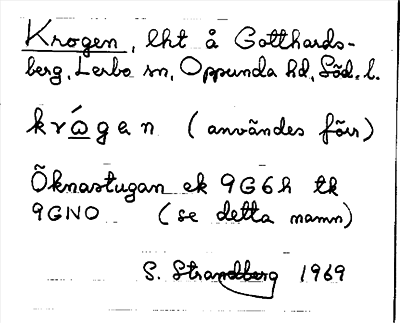 Krogen, lht å Gotthards-
berg, Lerbo sn, Oppunda hd, Söd. l.
krώgan (användes förr)
Öknastugan ek 9G6h tk
9GNO (se detta namn)
S. Strandberg 1969